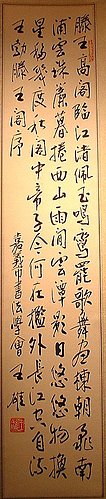 滕王高閣臨江渚佩玉鳴鸞罷歌舞畫棟朝飛南
浦雲珠簾暮捲西山雨閒雲潭影日悠悠物換
星移幾度秋閣中帝子今何在檻外長江空自流
王勃滕王閣序 嘉義市書法學會王雄